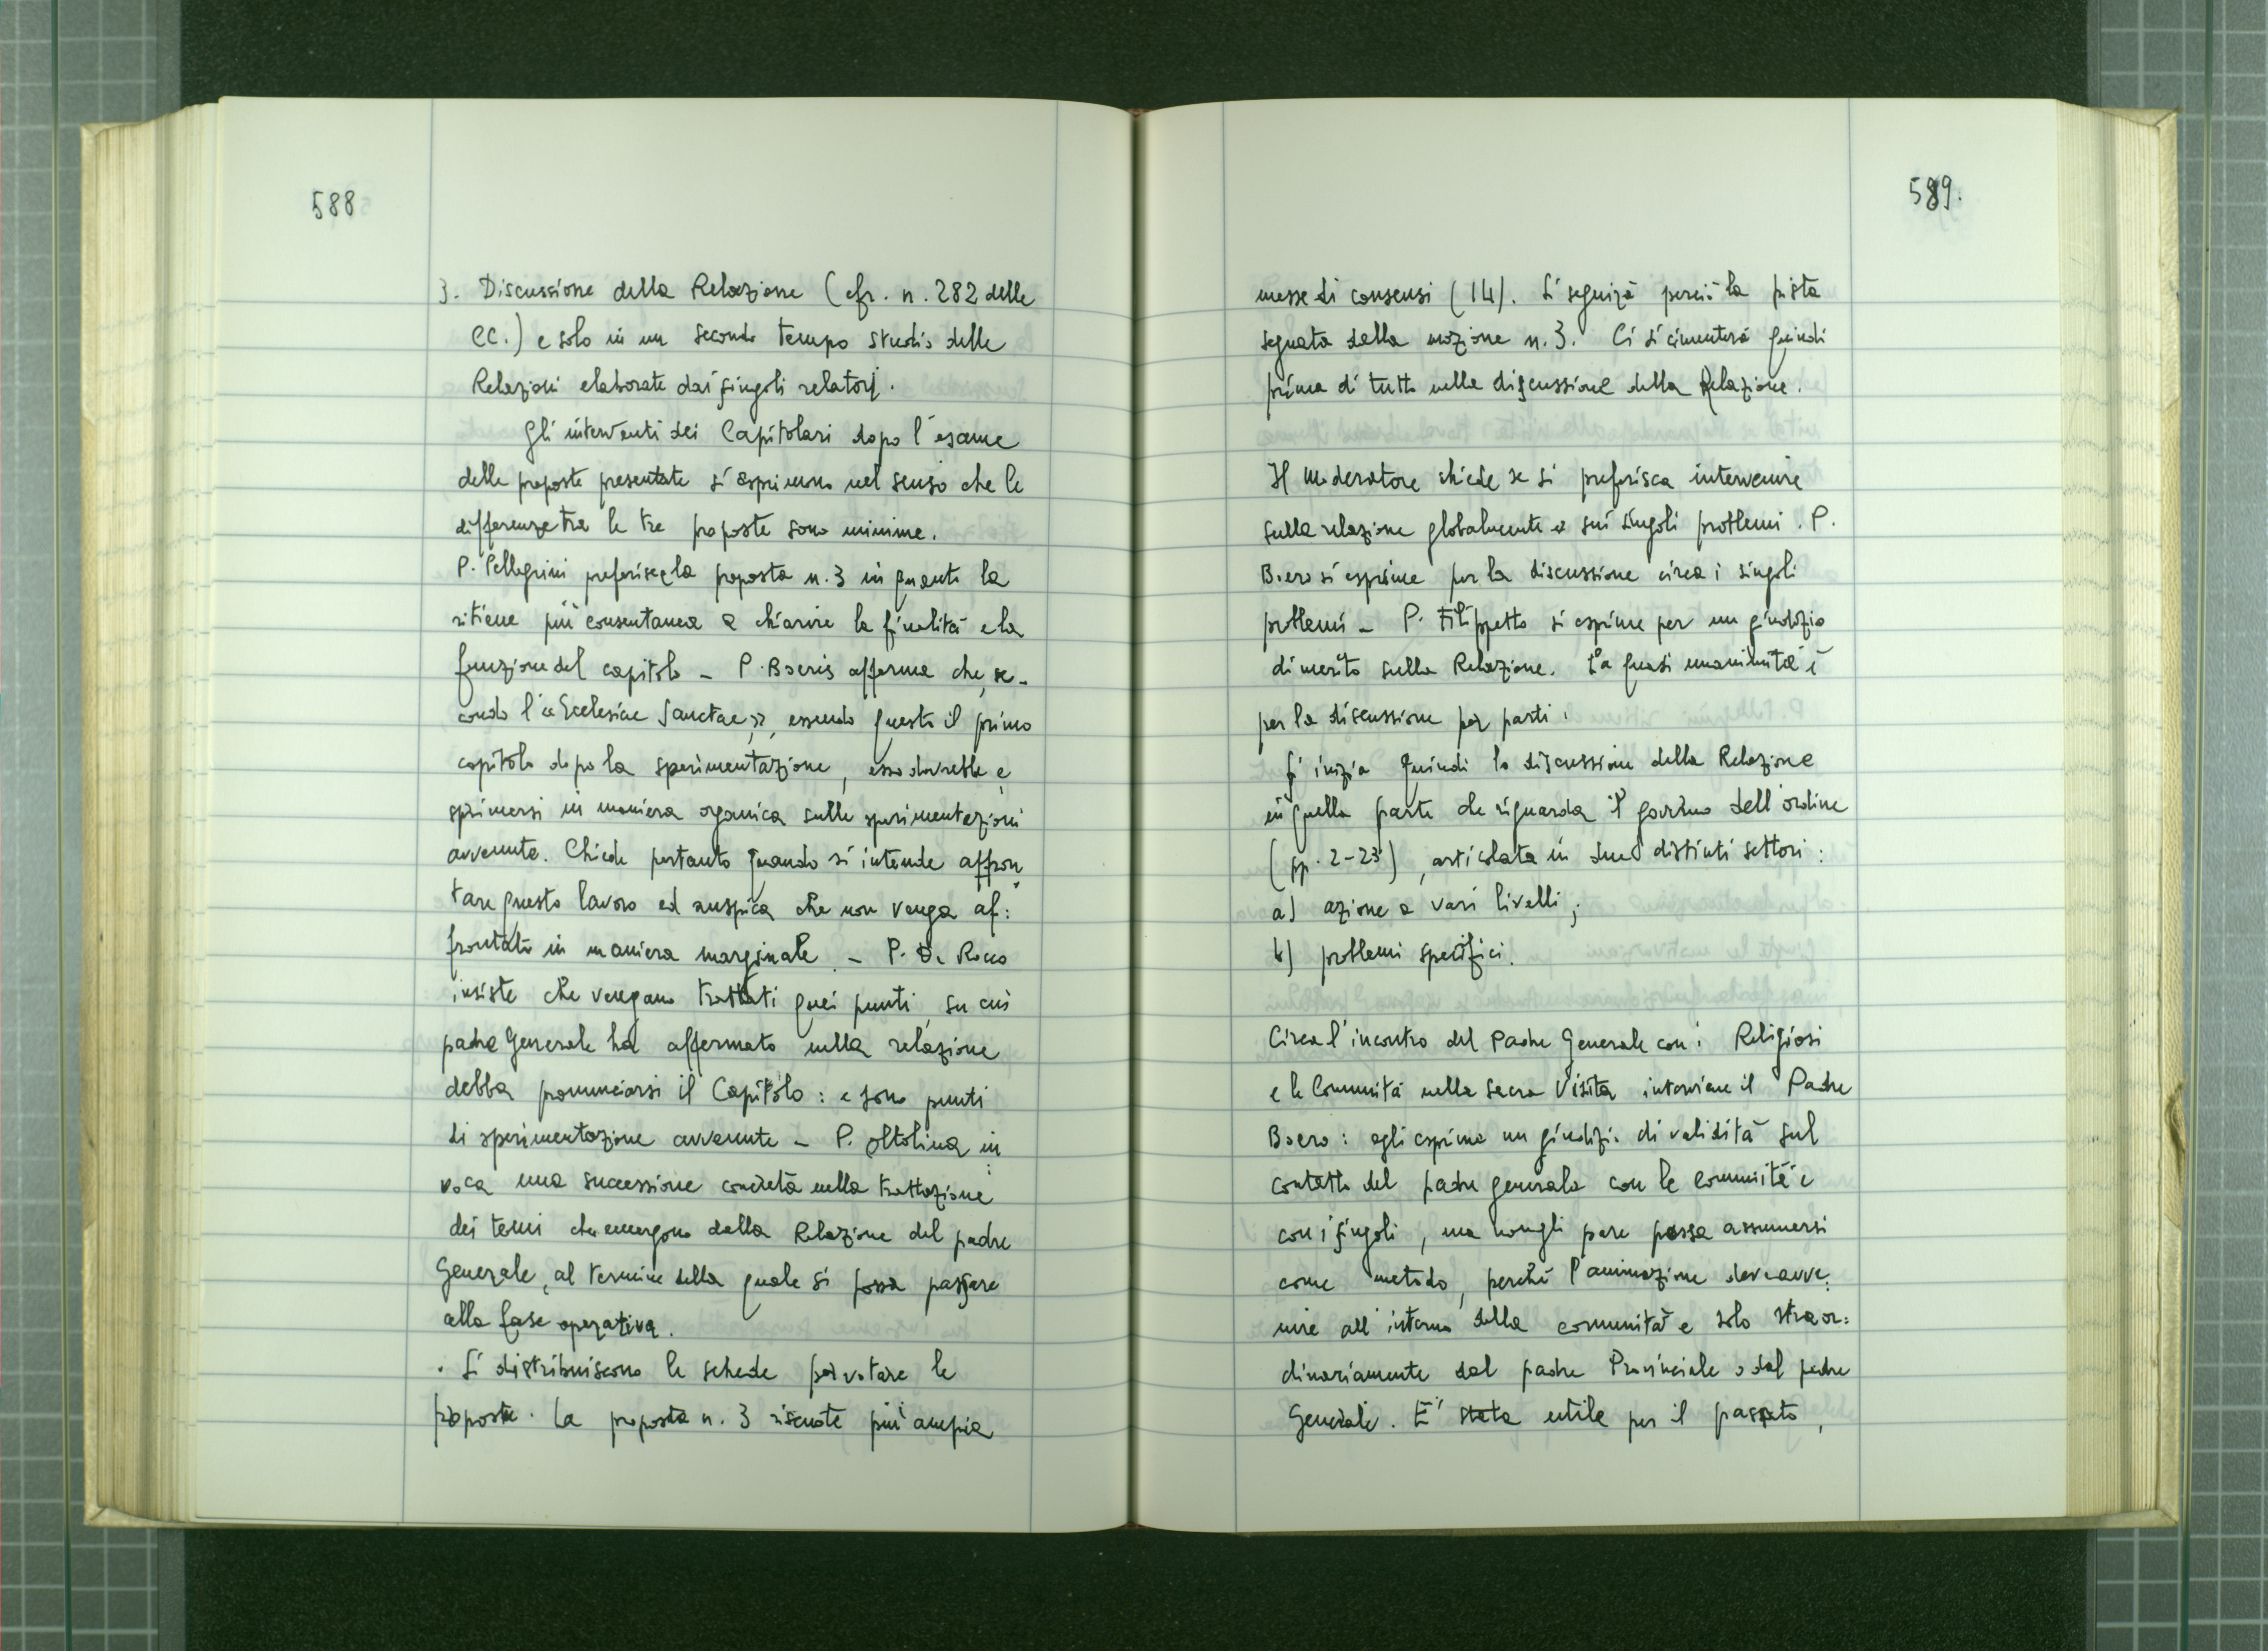 588
3. Discussione della Relazione (cfr. n. 282 delle
CC.) e solo in un secondo tempo studio delle
Relazioni elaborate dai singoli relatori.
Gli interventi dei Capitolari dopo l'esame
delle proposte presentate si esprimono nel senso che le
differenze tra le tre proposte sono minime.
P. Pellegrini preferisce la proposta n. 3 in quanto la
ritiene più consentanea a chiarire la finalità e la
funzione del capitolo - P. Boeris afferma che, se-
condo l'"Ecclesiae Sanctae", essendo questo il primo
capitolo dopo la sperimentazione, esso dovrebbe e
sprimersi in maniera organica sulle sperimentazioni
avvenute. Chiede pertanto quando si intende affron
tare questo lavoro ed auspica che non venga af:
frontato in maniera marginale. - P. De Rocco
insiste che vengano trattati quei punti, su cui
padre Generale ha affermato nella relazione
debba pronunciarsi il Capitolo: e sono punti
di sperimentazione avvenute - P. Oltolina in
voca una successione concreta nella trattazione
dei temi che emergono dalla Relazione del padre
Generale, al termine della quale si possa passare
alla fase operativa.
. Si distribuiscono le schede per votare le
proposte. La proposta n. 3 riscuote più ampia
589.
messe di consensi (14). Si seguirà perciò la pista
segnata dalla mozione n. 3. Ci si cimenterà quindi
prima di tutto nella discussione della Relazione.
Il moderatore chiede se si preferisca intervenire
sulla relazione globalmente o sui singoli problemi. P.
Boero si esprime per la discussione circa i singoli
problemi - P. Filippetto si esprime per un giudizio
di merito sulla Relazione. La quasi unanimità è
per la discussione per parti.
Si inizia quindi la discussione della Relazione
in quella parte che riguarda il governo dell'ordine
(pp. 2-23), articolata in due distinti settori:
a) azione a vari livelli;
b) problemi specifici.
Circa l'incontro del Padre Generale con i Religiosi
e le Comunità nella Sacra Visita interviene il Padre
Boero: egli esprime un giudizio di validità sul
contatto del padre generale con le comunità e
con i singoli, ma non gli pare possa assumersi
come metodo, perché l'animazione deve avve:
nire all'interno della comunità e solo straor:
dinariamente dal padre Provinciale o dal padre
Generale. E' stata utile per il passato,